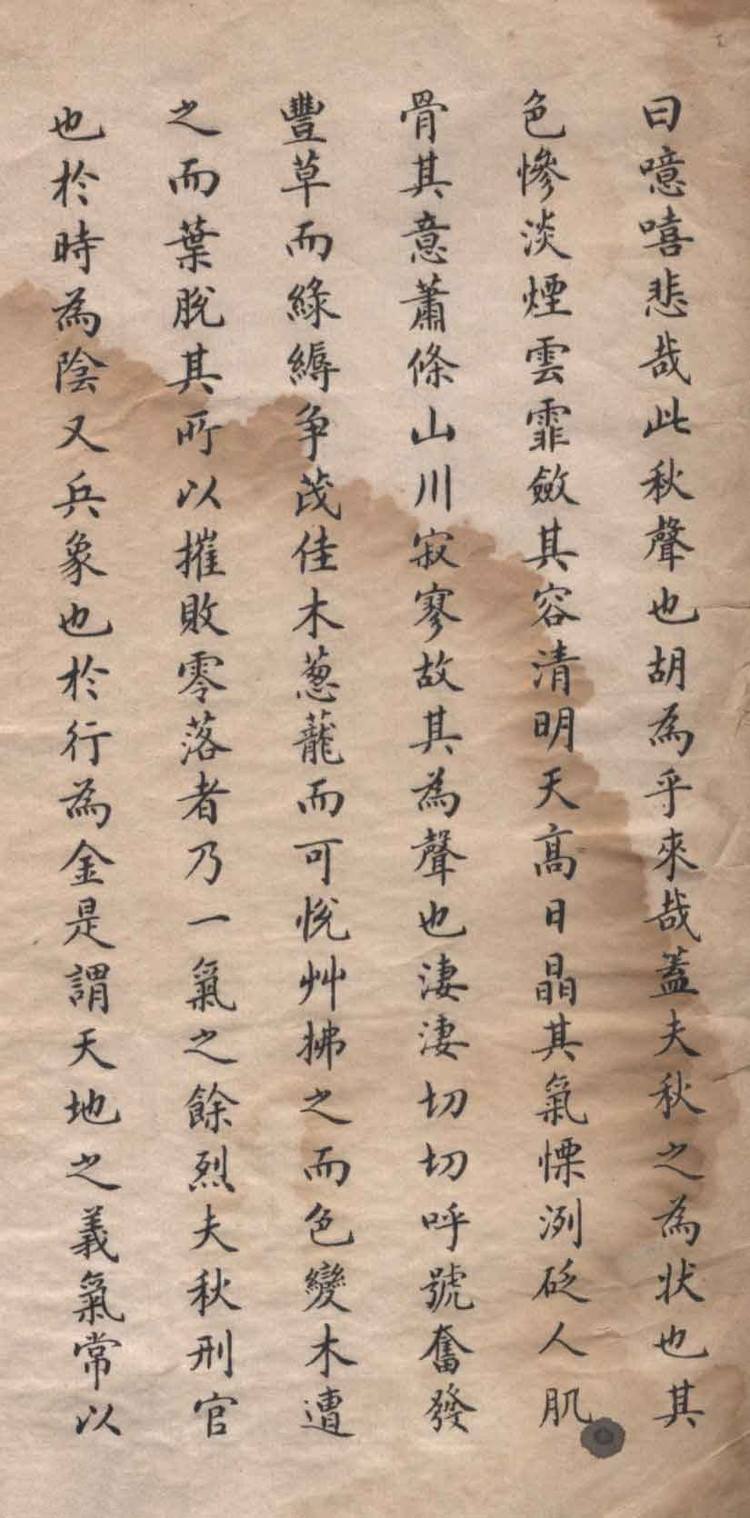 曰噫嘻悲哉此秋聲也胡為乎來哉蓋夫秋之為狀也其
色慘淡煙雲霏斂其容清明天高日晶其氣慄洌砭人肌
骨其意蕭條山川寂寥故其為聲也淒淒切切呼號奮發
豐草而綠縟爭茂佳木蔥蘢而可悅艸拂之而色變木遭
之而葉脫其所以摧敗零落者乃一氣之餘烈夫秋刑官
也於時為陰又兵象也於行為金是謂天地之義氣常以